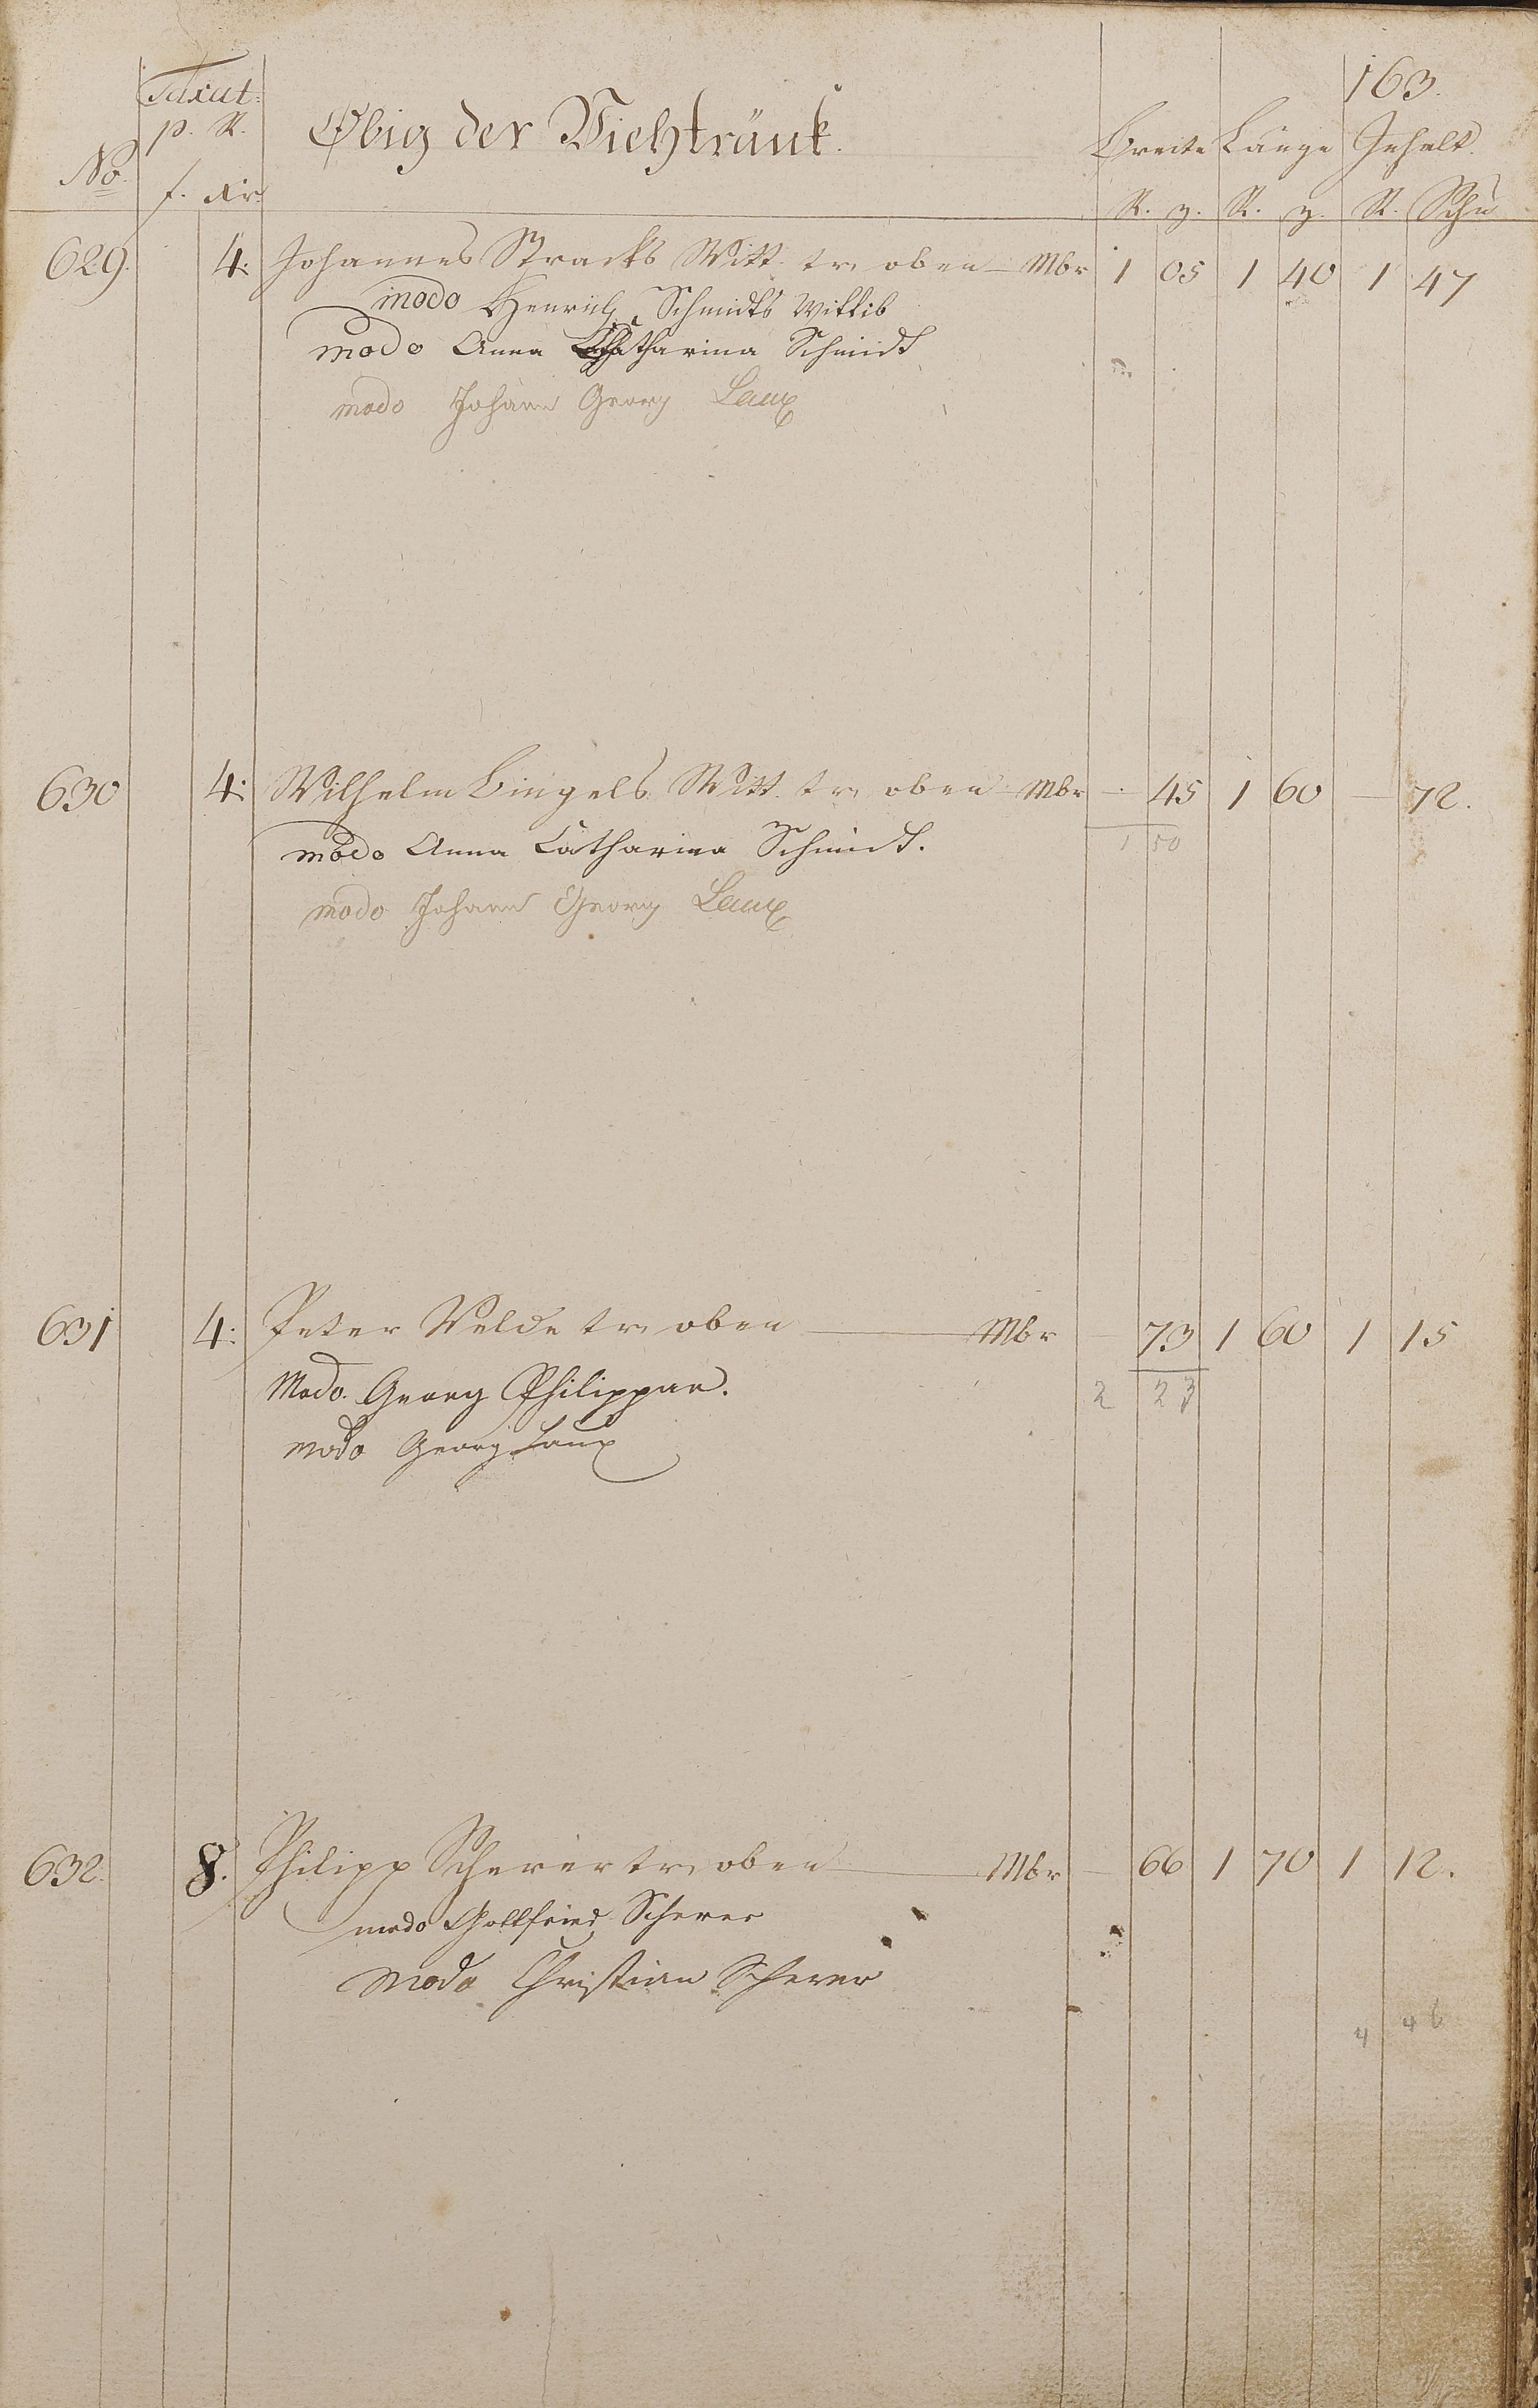 163.
Taxat:
p. R.
No. f. Xr.
Obig der Viehtränk.
Breite Länge Inhalt
R. z. R. z. R. Schu
629. 4: Johannes Stracks Witt. tr. oben Mbr 1 05 1 40 1 47
modo Henrich Schmidts Wittib
modo Anna Catharina Schmidt
modo Johann Georg Laux
630 4: Wilhelm Bingels Witt. tr. oben Mbr - 45 1 60 - 72.
1 50
modo Anna Catharina Schmidt.
modo Johann Georg Laux
631 4: Peter Velde tr. oben Mbr 73 1 60 1 15
2 23
Modo. Georg Philippar.
modo Georg Laux
632. 8. Philipp Scherer tr. oben Mbr - 66 1 70 1 12.
modo Gottfried Scherer
modo Christian Scherer
4 46